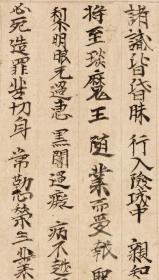 諸識皆昏昧 行入險城中 親知
將至琰魔王 隨業而受報
犁 明眼无過恵 黑闇過癡 病不越
必死 造罪苦切身 常勤策三業